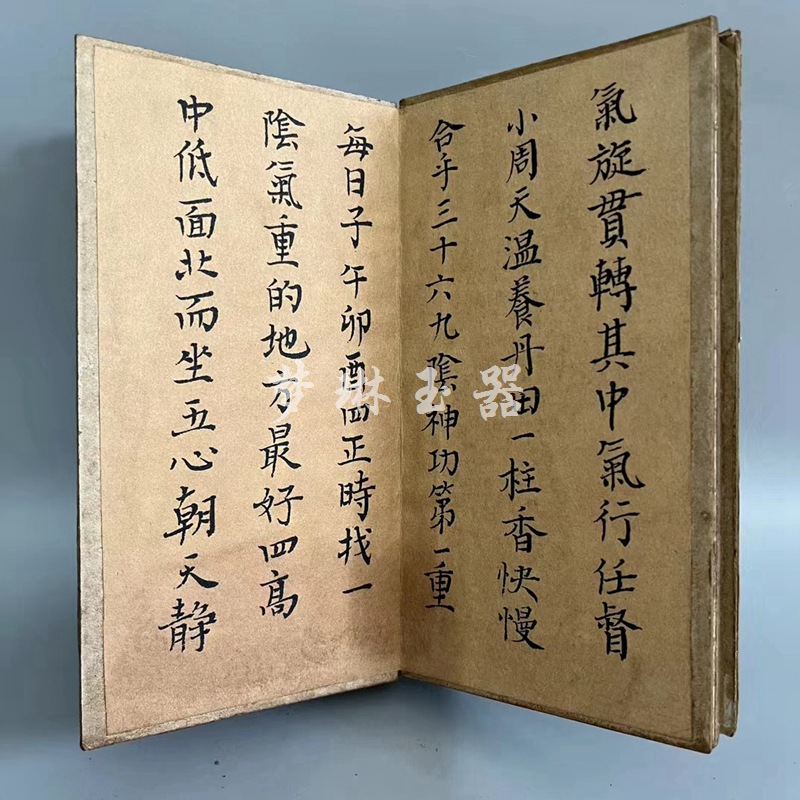 氣旋貫轉其中氣行任督
小周天溫養丹田一柱香快慢
合乎三十六九陰神功第一重
每日子午卯酉四正時找一
陰氣重的地方最好四高
中低面北而坐五心朝天静
梦琳玉器